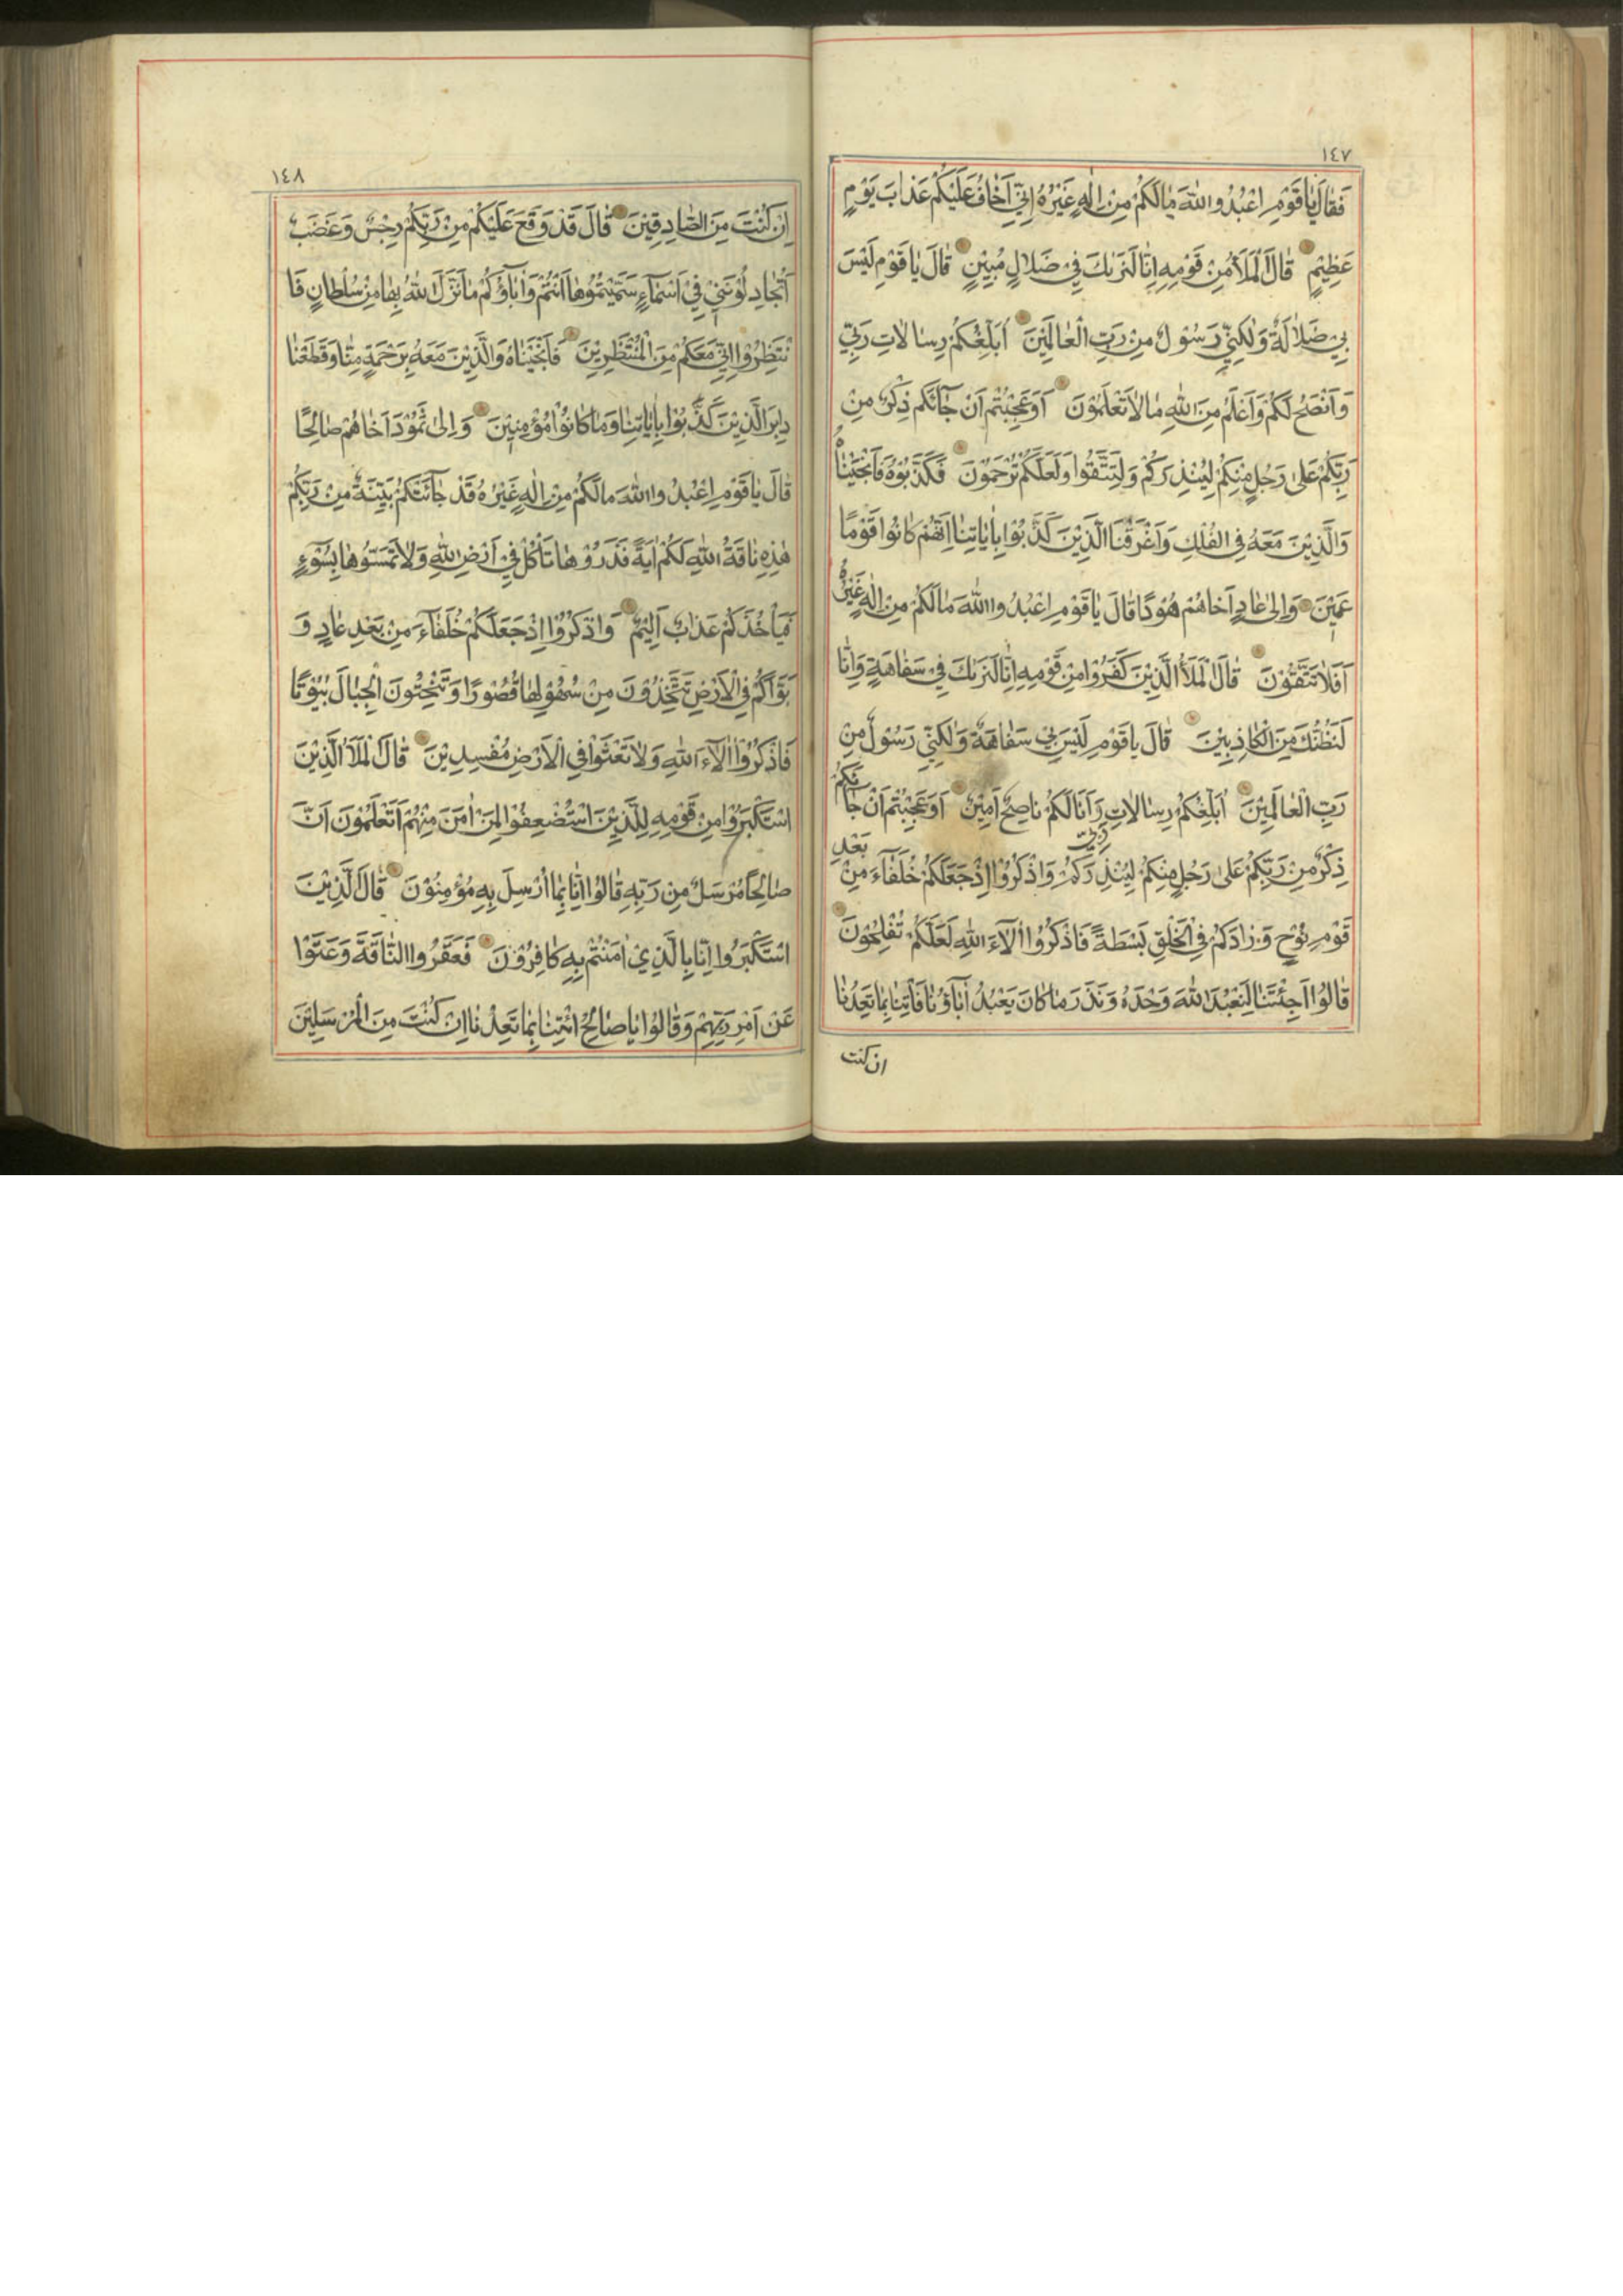 ١٤٧
فَقَالَ يَا قَوْمِ اعْبُدُوا اللهَ مَا لَكُمْ مِنْ اِلٰهٍ غَيْرُهُ اِنِّي اَخَافُ عَلَيْكُمْ عَذَابَ يَوْمٍ
عَظِيْمٍ قَالَ الْمَلَأُ مِنْ قَوْمِهِ اِنَّا لَنَرٰىكَ فِي ضَلَالٍ مُبِيْنٍ قَالَ يَا قَوْمِ لَيْسَ
بِي ضَلَالَةٌ وَلٰكِنِّي رَسُوْلٌ مِنْ رَبِّ الْعَالَمِيْنَ اُبَلِّغُكُمْ رِسَالَاتِ رَبِّي
وَاَنْصَحُ لَكُمْ وَاَعْلَمُ مِنَ اللهِ مَا لَا تَعْلَمُوْنَ اَوَعَجِبْتُمْ اَنْ جَآئَكُمْ ذِكْرٌ مِنْ
رَبِّكُمْ عَلٰى رَجُلٍ مِنْكُمْ لِيُنْذِرَكُمْ وَلِتَتَّقُوا وَلَعَلَّكُمْ تُرْحَمُوْنَ فَكَذَّبُوْهُ فَاَنْجَيْنَاهُ
وَالَّذِيْنَ مَعَهُ فِي الْفُلْكِ وَاَغْرَقْنَا الَّذِيْنَ كَذَّبُوْا بِاٰيَاتِنَا اِنَّهُمْ كَانُوْا قَوْمًا
عَمِيْنَ وَاِلٰى عَادٍ اَخَاهُمْ هُوْدًا قَالَ يَا قَوْمِ اعْبُدُوا اللهَ مَا لَكُمْ مِنْ اِلٰهٍ غَيْرُهُ
اَفَلَا تَتَّقُوْنَ قَالَ الْمَلَأُ الَّذِيْنَ كَفَرُوْا مِنْ قَوْمِهِ اِنَّا لَنَرٰىكَ فِي سَفَاهَةٍ وَاِنَّا
لَنَظُنُّكَ مِنَ الْكَاذِبِيْنَ قَالَ يَا قَوْمِ لَيْسَ بِي سَفَاهَةٌ وَلٰكِنِّي رَسُوْلٌ مِنْ
رَبِّ الْعَالَمِيْنَ اُبَلِّغُكُمْ رِسَالَاتِ رَبِّي وَاَنَا لَكُمْ نَاصِحٌ اَمِيْنٌ اَوَعَجِبْتُمْ اَنْ جَائَكُمْ
ذِكْرٌ مِنْ رَبِّكُمْ عَلٰى رَجُلٍ مِنْكُمْ لِيُنْذِرَكُمْ وَاذْكُرُوْا اِذْ جَعَلَكُمْ خُلَفَآءَ مِنْ بَعْدِ
قَوْمِ نُوْحٍ وَزَادَكُمْ فِي الْخَلْقِ بَسْطَةً فَاذْكُرُوْا اٰلَآءَ اللهِ لَعَلَّكُمْ تُفْلِحُوْنَ
قَالُوْا اَجِئْتَنَا لِنَعْبُدَ اللهَ وَحْدَهُ وَنَذَرَ مَا كَانَ يَعْبُدُ اٰبَآؤُنَا فَأْتِنَا بِمَا تَعِدُنَا
ان كنت
١٤٨
اِنْ كُنْتَ مِنَ الصَّادِقِيْنَ قَالَ قَدْ وَقَعَ عَلَيْكُمْ مِنْ رَبِّكُمْ رِجْسٌ وَغَضَبٌ
اَتُجَادِلُوْنَنِي فِي اَسْمَآءٍ سَمَّيْتُمُوْهَا اَنْتُمْ وَاٰبَآؤُكُمْ مَا نَزَّلَ اللهُ بِهَا مِنْ سُلْطَانٍ فَا
نْتَظِرُوْا اِنِّي مَعَكُمْ مِنَ الْمُنْتَظِرِيْنَ فَاَنْجَيْنَاهُ وَالَّذِيْنَ مَعَهُ بِرَحْمَةٍ مِنَّا وَقَطَعْنَا
دَابِرَ الَّذِيْنَ كَذَّبُوْا بِاٰيَاتِنَا وَمَا كَانُوْا مُؤْمِنِيْنَ وَاِلٰى ثَمُوْدَ اَخَاهُمْ صَالِحًا
قَالَ يَا قَوْمِ اعْبُدُوا اللهَ مَا لَكُمْ مِنْ اِلٰهٍ غَيْرُهُ قَدْ جَآئَتْكُمْ بَيِّنَةٌ مِنْ رَبِّكُمْ
هٰذِهِ نَاقَةُ اللهِ لَكُمْ اٰيَةً فَذَرُوْهَا تَأْكُلْ فِي اَرْضِ اللهِ وَلَا تَمَسُّوْهَا بِسُوْءٍ
فَيَأْخُذَكُمْ عَذَابٌ اَلِيْمٌ وَاذْكُرُوْا اِذْ جَعَلَكُمْ خُلَفَآءَ مِنْ بَعْدِ عَادٍ وَ
بَوَّاَكُمْ فِي الْاَرْضِ تَتَّخِذُوْنَ مِنْ سُهُوْلِهَا قُصُوْرًا وَتَنْحِتُوْنَ الْجِبَالَ بُيُوْتًا
فَاذْكُرُوْا اٰلَآءَ اللهِ وَلَا تَعْثَوْا فِي الْاَرْضِ مُفْسِدِيْنَ قَالَ الْمَلَأُ الَّذِيْنَ
اسْتَكْبَرُوْا مِنْ قَوْمِهِ لِلَّذِيْنَ اسْتُضْعِفُوْا لِمَنْ اٰمَنَ مِنْهُمْ اَتَعْلَمُوْنَ اَنَّ
صَالِحًا مُرْسَلٌ مِنْ رَبِّهِ قَالُوْا اِنَّا بِمَا اُرْسِلَ بِهِ مُؤْمِنُوْنَ قَالَ الَّذِيْنَ
اسْتَكْبَرُوْا اِنَّا بِالَّذِيْ اٰمَنْتُمْ بِهِ كَافِرُوْنَ فَعَقَرُوا النَّاقَةَ وَعَتَوْا
عَنْ اَمْرِ رَبِّهِمْ وَقَالُوْا يَا صَالِحُ ائْتِنَا بِمَا تَعِدُنَا اِنْ كُنْتَ مِنَ الْمُرْسَلِيْنَ